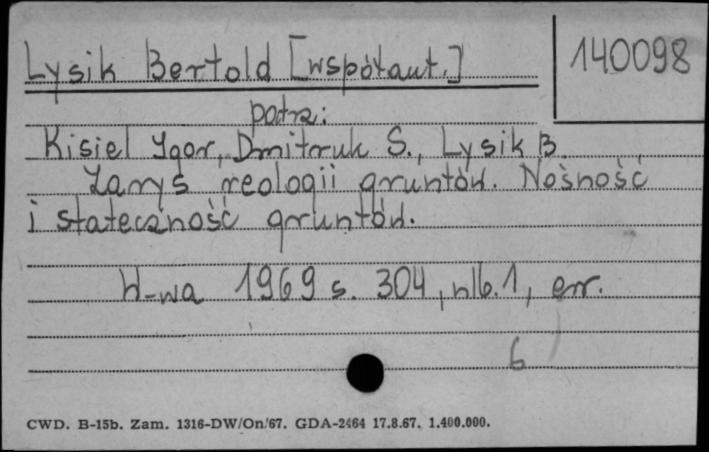 Lysik Bertold [współaut.]
140098
patrz:
Kisiel Igor, Dmitruk S., Lysik B.
Zarys reologii gruntów. Nośność
i stateczność gruntów.
W-wa 1969 s. 304, nlb. 1, err.
6
CWD. B-15b. Zam. 1316-DW/On/67. GDA-2464 17.8.67. 1.400.000.